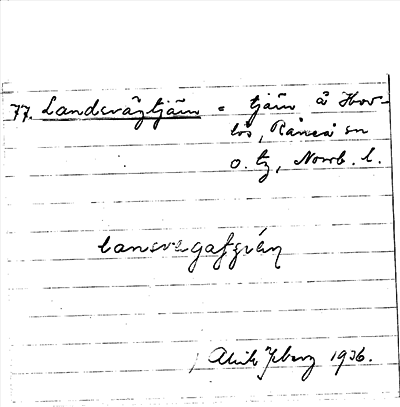 77. Landsvägtjärn = tjärn å Hov-
lös, Råneå sn
o. tg, Norrb. l.
lansvegatjärn
1936.